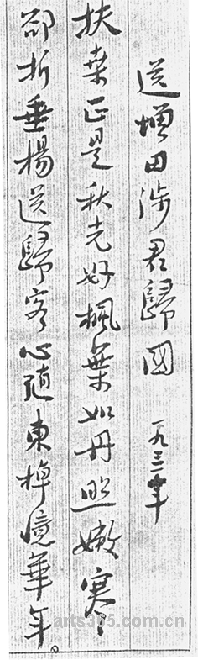 送增田涉君歸國 一九三一年
扶桑正是秋光好楓葉如丹照嫩寒
卻折垂楊送歸客心隨東棹憶華年。
arts365.com.cn